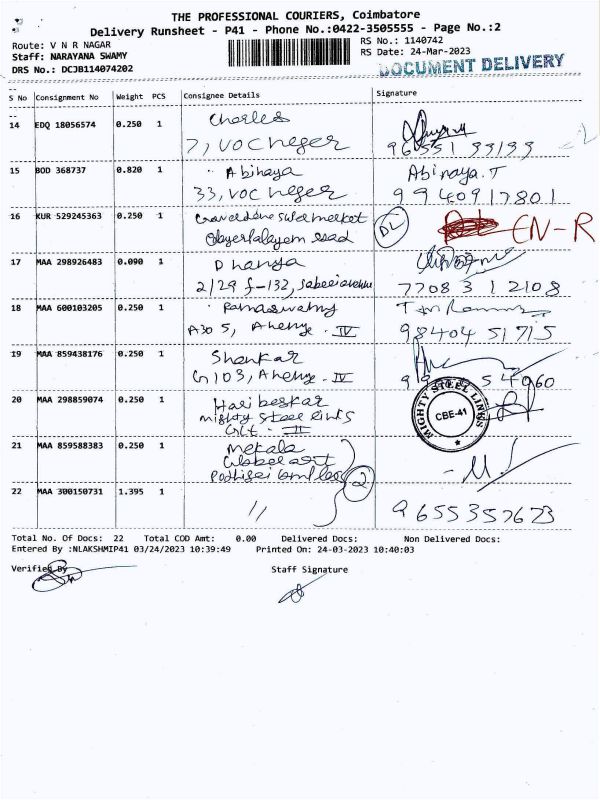 THE PROFESSIONAL COURIERS, Coimbatore
Delivery Runsheet - P41 - Phone No.:0422-3505555 - Page No.:2
Route: V N R NAGAR
RS No.: 1140742
Staff: NARAYANA SWAMY
RS Date: 24-Mar-2023
DRS No.: DCJB114074202
DOCUMENT DELIVERY
S No Consignment No Weight PCS Consignee Details Signature
14 EDQ 18056574 0.250 1 Charles
7, VOC neger
15 BOD 368737 0.820 1 Abinaya Abinaya.T
33, VOC neger 9940917801
16 KUR 529245363 0.250 1 DL CN-R
17 MAA 298926483 0.090 1 Dhanya
2/29 f-132, 77083 12108
18 MAA 600103205 0.250 1 Ramaswamy
A305, IV 98404 51715
19 MAA 859438176 0.250 1 Shankar
G103, IV
20 MAA 298859074 0.250 1 Hari beskar
Mighty Steel Links
III
MIGHTY STEEL LINKS
CBE-41
21 MAA 859588383 0.250 1 Mekala
2
22 MAA 300150731 1.395 1 //
9655357673
Total No. Of Docs: 22 Total COD Amt: 0.00 Delivered Docs: Non Delivered Docs:
Entered By :NLAKSHMIP41 03/24/2023 10:39:49 Printed On: 24-03-2023 10:40:03
Verified By
Staff Signature